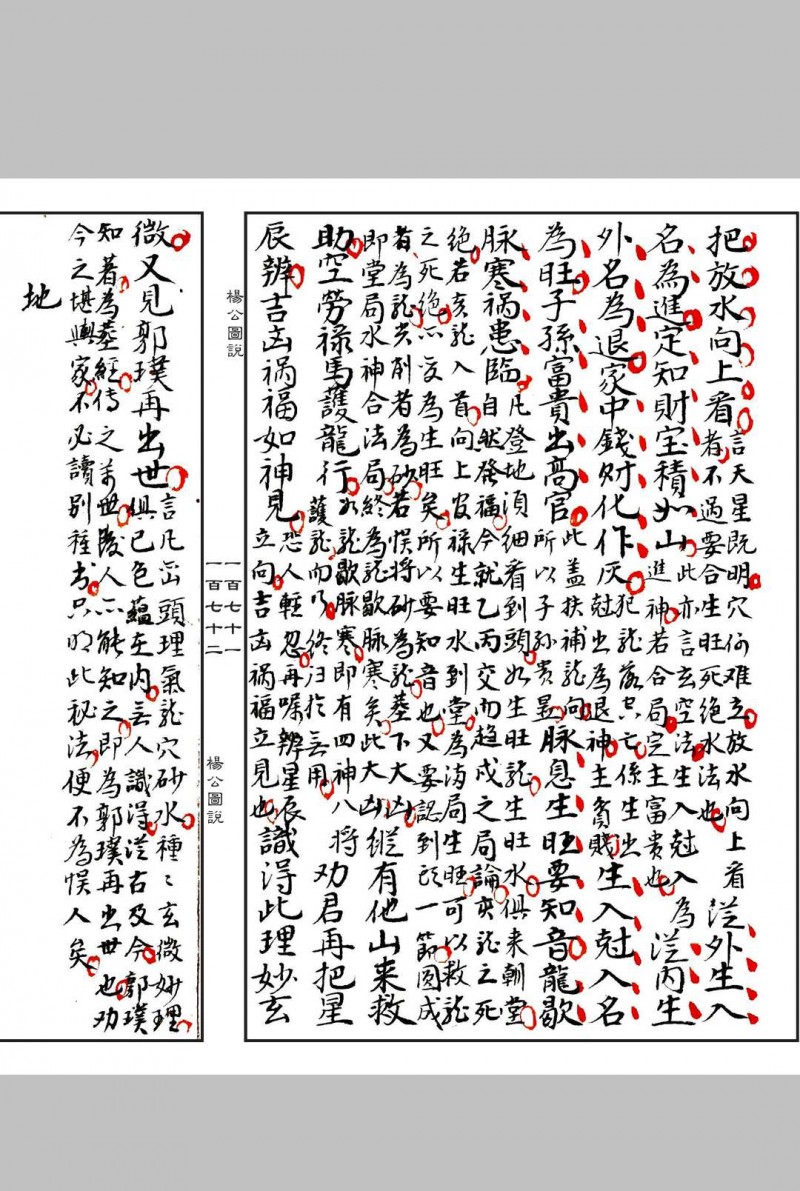 把放水向上看
言天星既明穴何难立放水向上看
者不過要合生旺死絕水法也
從外生入
名為進定知財宝積如山
此亦言玄空法生入尅入為
進神若合局定主富貴也
從內生
外名為退家中錢财化作灰
犯龍落空亡係生出
尅出為退神主貧賤
生入尅入名
為旺子孫富貴出高官
此盖扶補龍向
所以子孙贵显
脉息生旺要知音龍歇
脉寒禍患臨
凡登地須細看到頭如生旺龍生旺水俱来朝堂
自然發福今就乙丙交而趋戌之局論亥龍之死
絕若亥龍入首向上官禄生旺水到堂為局生旺可以救龍
之死絕亦变為生旺矣所以要知音也又要認到頭一節圆成
者為龍尖削者為砂若悮将砂為龍塟下大凶
即堂局水神合法局終為龍歇脉寒矣此大凶
縱有他山来救
助空劳禄馬護龍行
如龍歇脉寒即有四神八將
護龍而乃終归於無用
劝君再把星
辰辨吉凶禍福如神見
恐人輕忽再嘱辨星辰
立向吉凶禍福立見也
識得此理妙玄
楊公圖說
一百七十一
一百七十二
楊公圖說
微又見郭璞再出世
言凡峦頭理氣龍穴砂水種〻玄微妙理
俱已包蘊在內無人識得從古及今郭璞
知著為塟經傳之万世後人亦能知之即為郭璞再出世也劝
今之堪輿家不必讀别種书只明此秘法便不為悮人矣
地